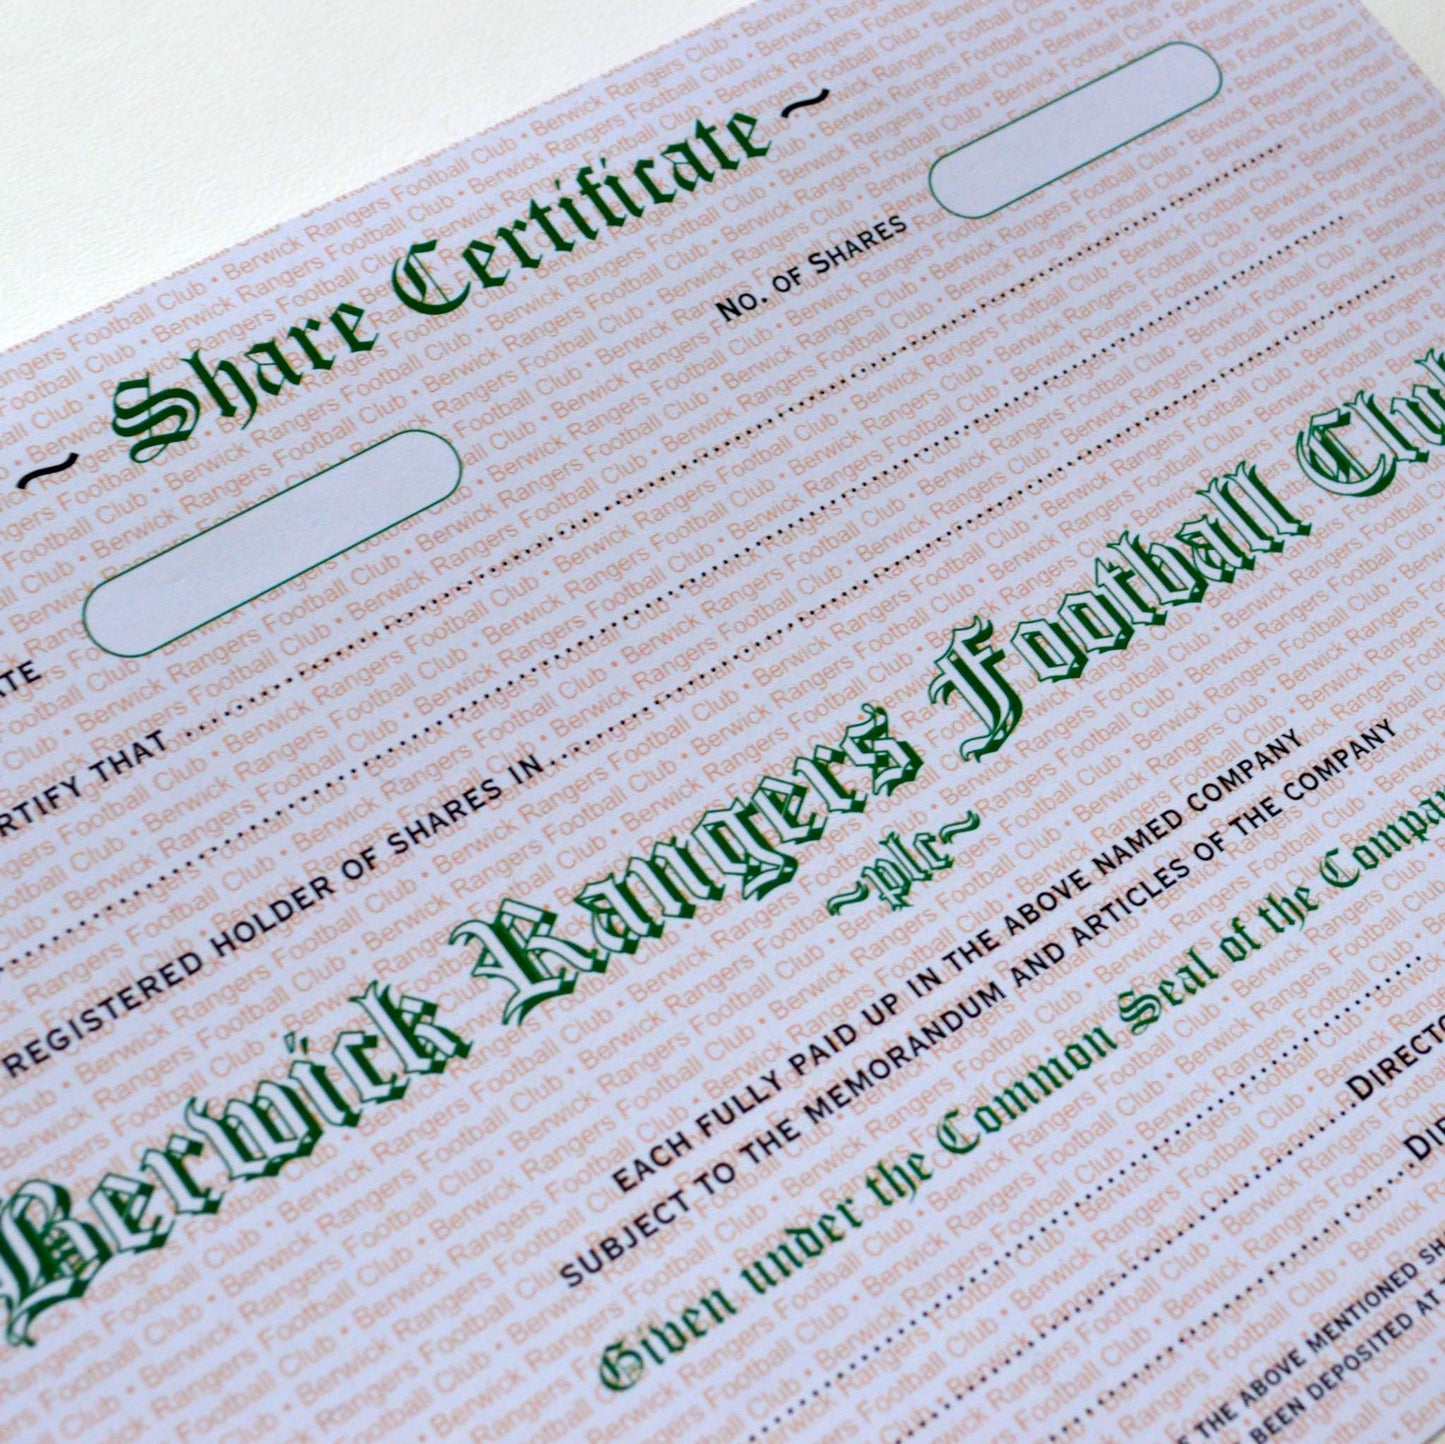 ~ Share Certificate ~
NO. OF SHARES
ATE
RTIFY THAT
REGISTERED HOLDER OF SHARES IN
Berwick Rangers Football Club
~plc~
EACH FULLY PAID UP IN THE ABOVE NAMED COMPANY
SUBJECT TO THE MEMORANDUM AND ARTICLES OF THE COMPANY
Given under the Common Seal of the Compan
DIRECTO
DIR
THE ABOVE MENTIONED SH
BEEN DEPOSITED AT
Berwick Rangers Football Club • Berwick Rangers Football Club • Berwick Rangers Football Club